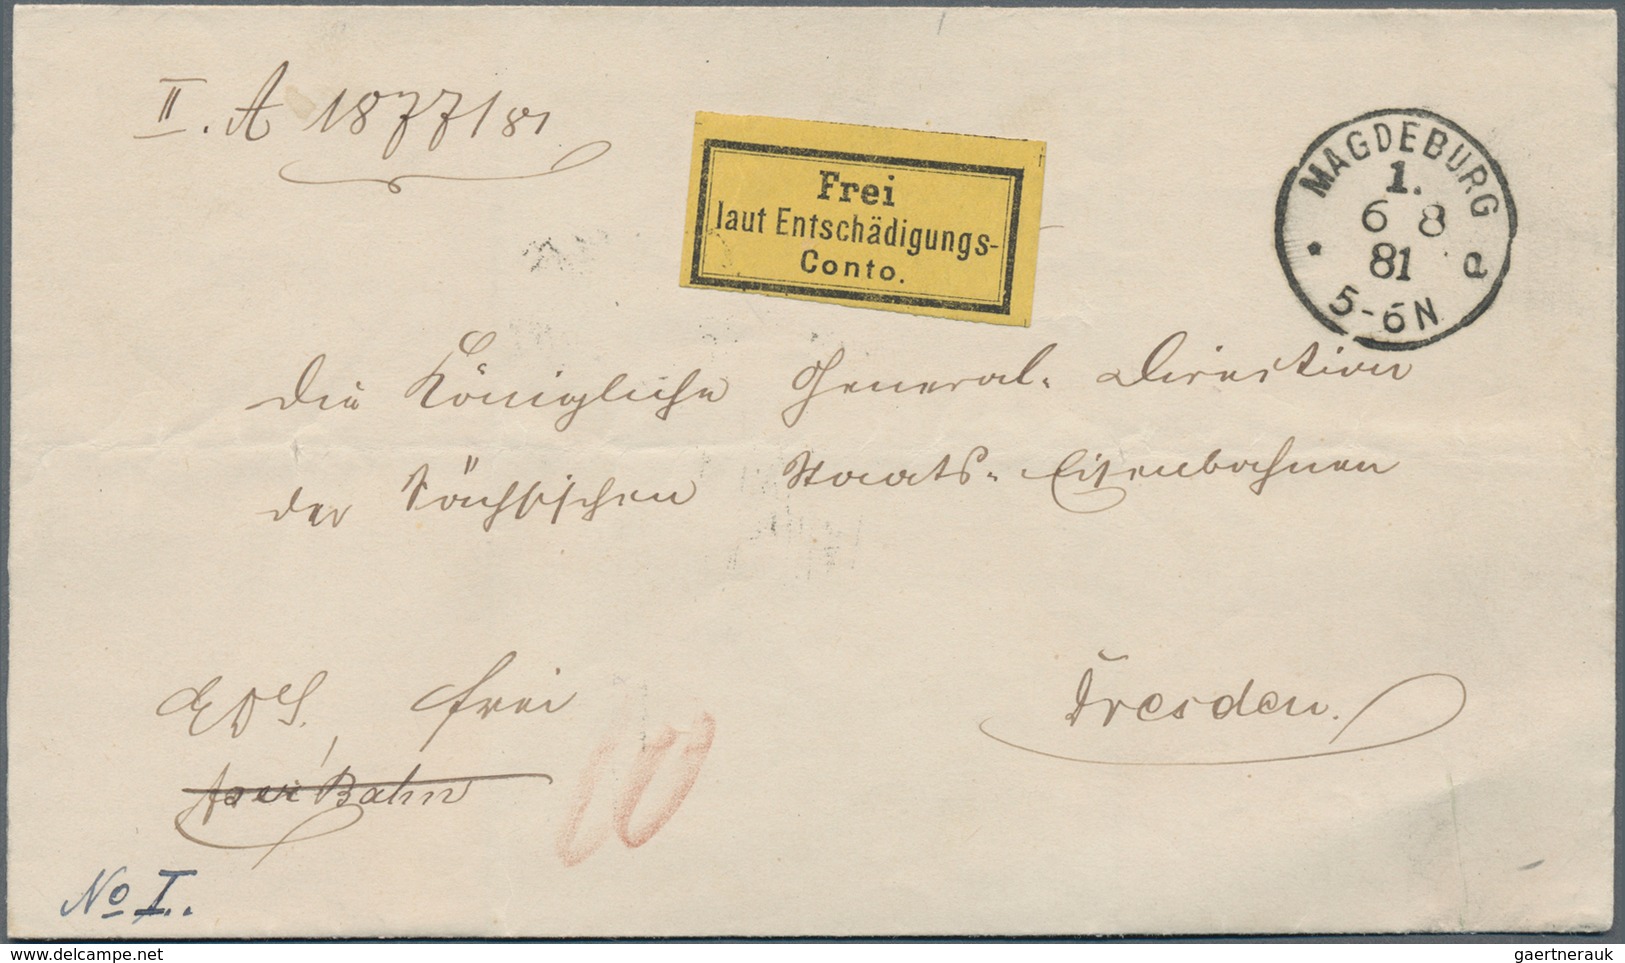 II. A 1877/81
Frei
laut Entschädigungs-
Conto.
MAGDEBURG
1.
6 8
81
5-6N
d
Die Königliche General-Direction
der Sächsischen Staats-Eisenbahnen
Dresden.
frei
Bahn
10
No I.
delcampe.net
gaertnerauk